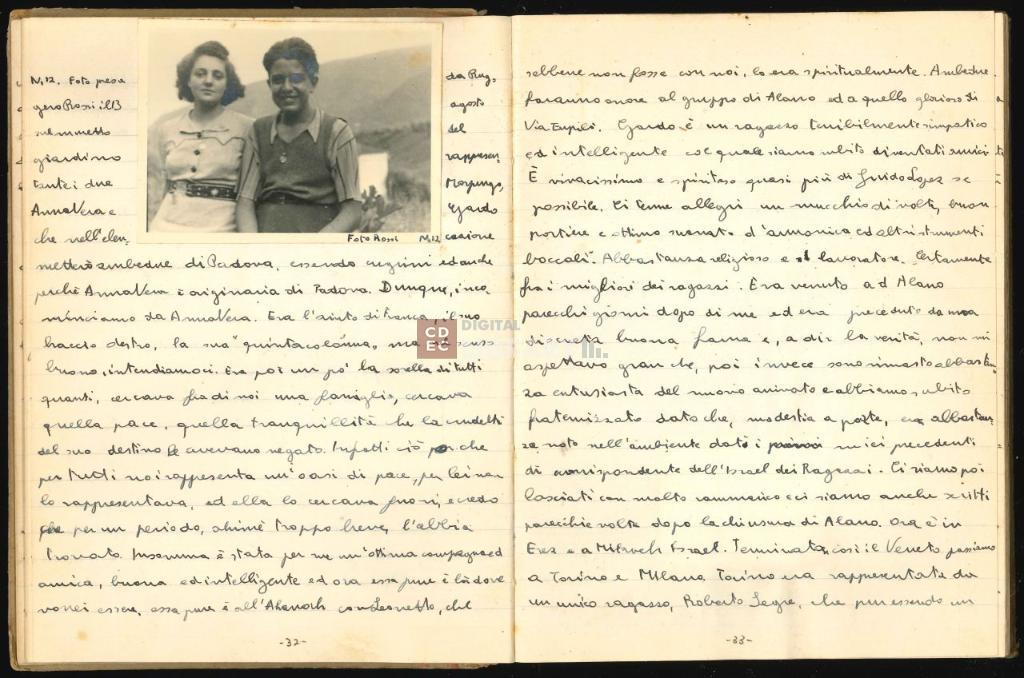 N.12. Foto presa da Rug-
gero Rossi il 13 agosto
sul muretto del
giardino rappresen-
tante i due Morpurgo,
AnnaVera e Egardo
che nell'elen- cazione
Foto Rossi N.12
metterò ambedue di Padova, essendo cugini ed anche
perché AnnaVera è originaria di Padova. Dunque, inco-
minciamo da AnnaVera. Era l'aiuto di Franca, il suo
braccio destro, la sua "quinta colonna, ma in senso
buono, intendiamoci. Era poi un po' la sorella di tutti
quanti, cercava fra di noi una famiglia, cercava
quella pace, quella tranquillità che la crudeltà
del suo destino le avevano negato. Infatti ciò che
per tutti noi rappresenta un'oasi di pace, per lei non
lo rappresentava, ed ella lo cercava fra noi, e credo
che per un periodo, ahimè troppo breve, l'abbia
trovato. Insomma è stata per me un'ottima compagna ed
amica, buona ed intelligente ed ora essa pure è là dove
vorrei essere, essa pure è all'Ahavah con Leonetto, che
-32-
sebbene non fosse con noi, lo era spiritualmente. Ambedue
faranno onore al gruppo di Alano ed a quello glorioso di
Via Eupili. Egardo è un ragazzo terribilmente simpatico
ed intelligente col quale siamo subito diventati amici.
È vivacissimo e spiritoso quasi più di Guido Lopez se
possibile. Ci tenne allegri un mucchio di volte, buon
portiere e ottimo suonatore d'armonica ed altri strumenti
boccali. Abbastanza religioso e lavoratore. Certamente
fra i migliori dei ragazzi. Era venuto ad Alano
parecchi giorni dopo di me ed era preceduto da una
discreta buona fama e, a dir la verità, non mi
aspettavo gran che, poi invece sono rimasto abbastan-
za entusiasta del nuovo arrivato e abbiamo subito
fraternizzato dato che, modestia a parte, ero abbastan-
za noto nell'ambiente dati i miei precedenti
di corrispondente dell'Israel dei Ragazzi. Ci siamo poi
lasciati con molto rammarico e ci siamo anche scritti
parecchie volte dopo la chiusura di Alano. Ora è in
Erez e a Mikweh Israel. Terminata così il Veneto passiamo
a Torino e Milano. Torino era rappresentata da
un unico ragazzo, Roberto Segre, che pur essendo un
-33-
CD
EC
DIGITAL